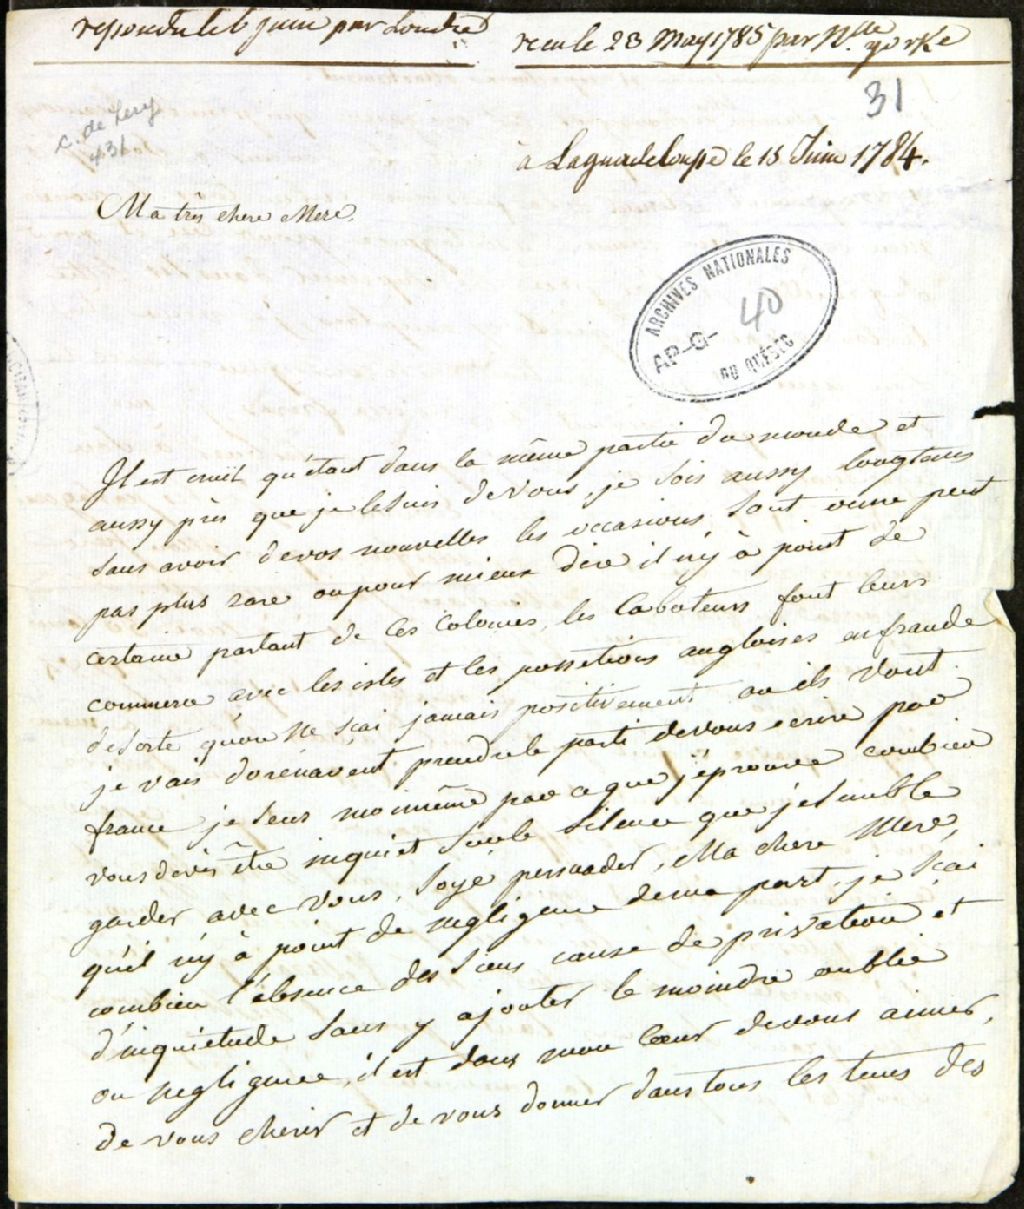 repondu le 6 juin par Londre
recu le 23 May 1785 par Nlle yorke
31
C. de Lery
431
à Laguadeloupe le 15 Juin 1784.
Ma très chere Mere.
ARCHIVES NATIONALES
AP-G- 40
DU QUÉBEC
Il est cruel qu'étant dans la même partie du monde et
aussy près que je le suis de vous, je sois aussy longtems
sans avoir de vos nouvelles les occasions sont on ne peut
pas plus rare ou pour mieux dire il n'y à point de
certaine partant de ces Colonies, les Caboteurs font leurs
commerce avec les isles et les possetions angloises en fraude
desorte qu'on ne sçai jamais positivement ou ils vont.
je vais dorénavent prendre le parti de vous ecrire par
france je sens moi même par ce que j'éprouve combien
vous devés être inquiet sur le silence que je semble
garder avec vous, soyé persuader, Ma chere Mere,
qu'il n'y à point de negligence de ma part je sçai
combien l'absence des siens cause de privation et
d'inquietude sans y ajouter le moindre oublie
ou negligence, il est dans mon Cœur de vous aimer,
de vous cherir et de vous donner dans tous les tems des